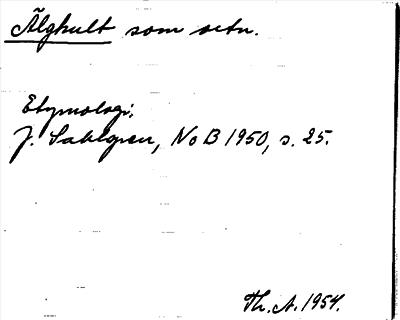 Älghult som ortn.
Etymologi.
J. Sahlgren, NoB 1950, s. 25.
Th. A. 1954.